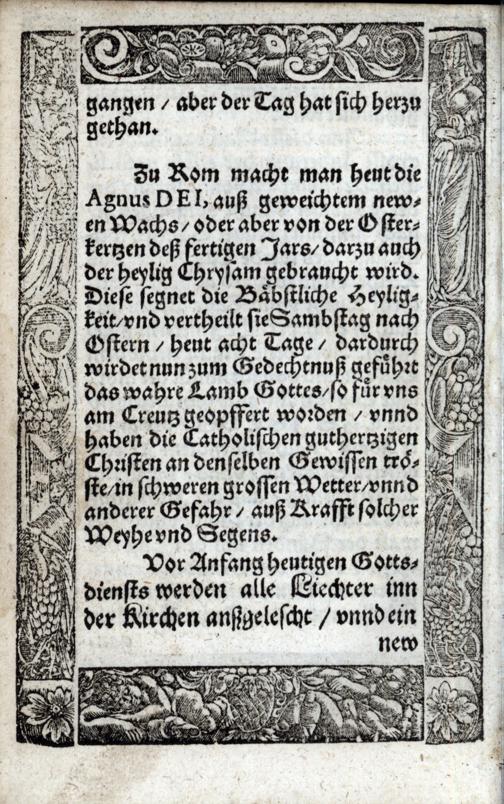 gangen / aber der Tag hat sich herzu
gethan.
Zu Rom macht man heut die
Agnus DEI, auß geweichtem new⸗
en Wachs / oder aber von der Oster⸗
kertzen deß fertigen Jars / darzu auch
der heylig Chrysam gebraucht wird.
Diese segnet die Bäbstliche Heylig⸗
keit / vnd vertheilt sie Sambstag nach
Ostern / heut acht Tage / dardurch
wirdet nun zum Gedechtnuß gefuͤhrt
das wahre Lamb Gottes / so fuͤr vns
am Creutz geopffert worden / vnnd
haben die Catholischen guthertzigen
Christen an denselben Gewissen troͤ⸗
ste / in schweren grossen Wetter / vnnd
anderer Gefahr / auß Krafft solcher
Weyhe vnd Segens.
Vor Anfang heutigen Gotts⸗
diensts werden alle Liechter inn
der Kirchen anßgelescht / vnnd ein
new